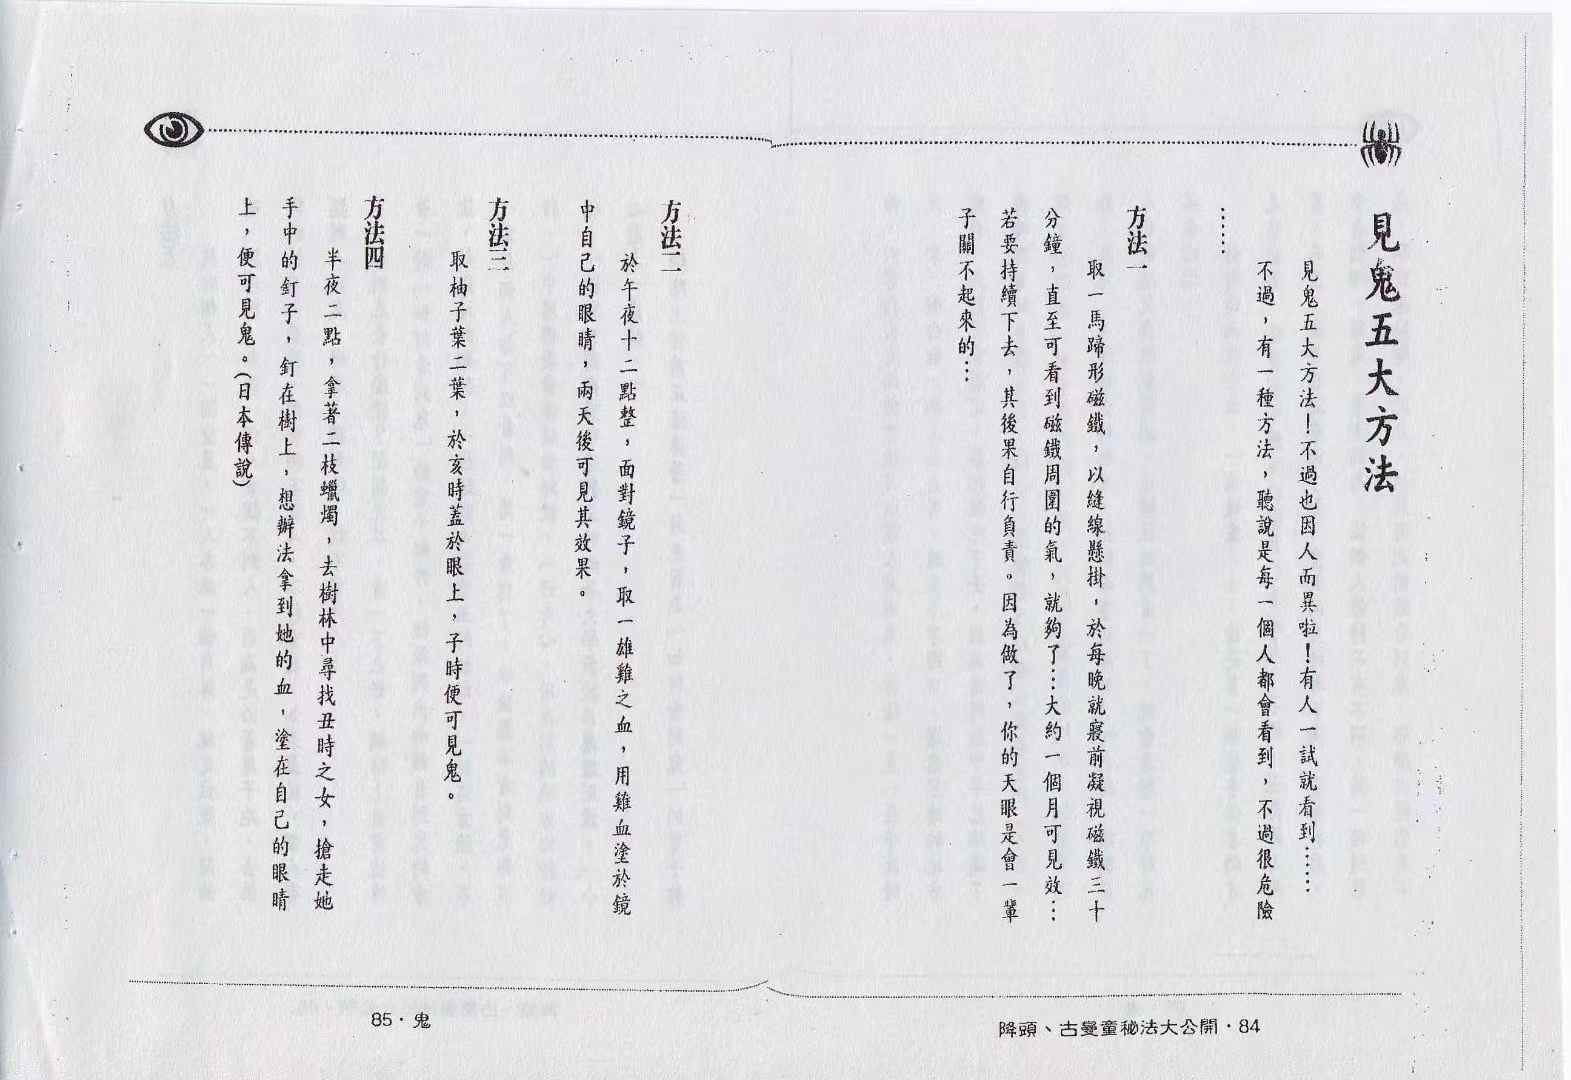 見鬼五大方法
見鬼五大方法！不過也因人而異啦！有人一試就看到……
不過，有一種方法，聽說是每一個人都會看到，不過很危險
……
方法一
取一馬蹄形磁鐵，以縫線懸掛，於每晚就寢前凝視磁鐵三十
分鐘，直至可看到磁鐵周圍的氣，就夠了…大約一個月可見效…
若要持續下去，其後果自行負責。因為做了，你的天眼是會一輩
子關不起來的…
降頭、古曼童秘法大公開·84
方法二
於午夜十二點整，面對鏡子，取一雄雞之血，用雞血塗於鏡
中自己的眼睛，兩天後可見其效果。
方法三
取柚子葉二葉，於亥時蓋於眼上，子時便可見鬼。
方法四
半夜二點，拿著二枝蠟燭，去樹林中尋找丑時之女，搶走她
手中的釘子，釘在樹上，想辦法拿到她的血，塗在自己的眼睛
上，便可見鬼。(日本傳說)
85·鬼